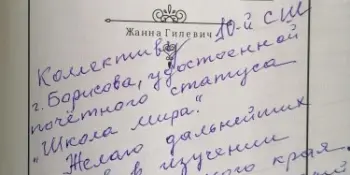 Жанна Гилевич
Коллективу 10-й СШ
г. Борисова, удостоенной
почётного статуса
"Школа мира".
Желаю дальнейших
в изучении
края